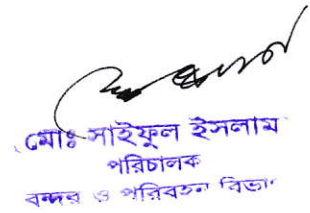 মোঃ সাইফুল ইসলাম
পরিচালক
বন্দর ও পরিবহন বিভাগ